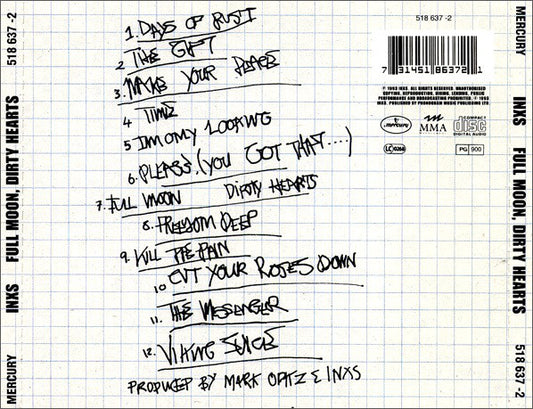 MERCURY
518 637 -2
INXS FULL MOON, DIRTY HEARTS
1. DAYS OF RUST
2 THE GIFT
3. MAKE YOUR PEACE
4 TIME
5 I'M ONLY LOOKING
6. PLEASE (YOU GOT THAT....)
7. FULL MOON DIRTY HEARTS
8. FREEDOM DEEP
9. KILL THE PAIN
10 CUT YOUR ROSES DOWN
11. THE MESSENGER
12. VIKING JUICE
PRODUCED BY MARK OPITZ & INXS
518 637 -2
7 31451 86372 1
℗ 1993 INXS. ALL RIGHTS RESERVED. UNAUTHORISED
COPYING, REPRODUCTION, HIRING, LENDING, PUBLIC
PERFORMANCE AND BROADCASTING PROHIBITED. © 1993
INXS. PUBLISHED BY PHONOGRAM MUSIC PUBLISHING LTD.
mercury
MMA
COMPACT
disc
DIGITAL AUDIO
LC 0268
PG 900
MERCURY
INXS FULL MOON, DIRTY HEARTS
518 637 -2